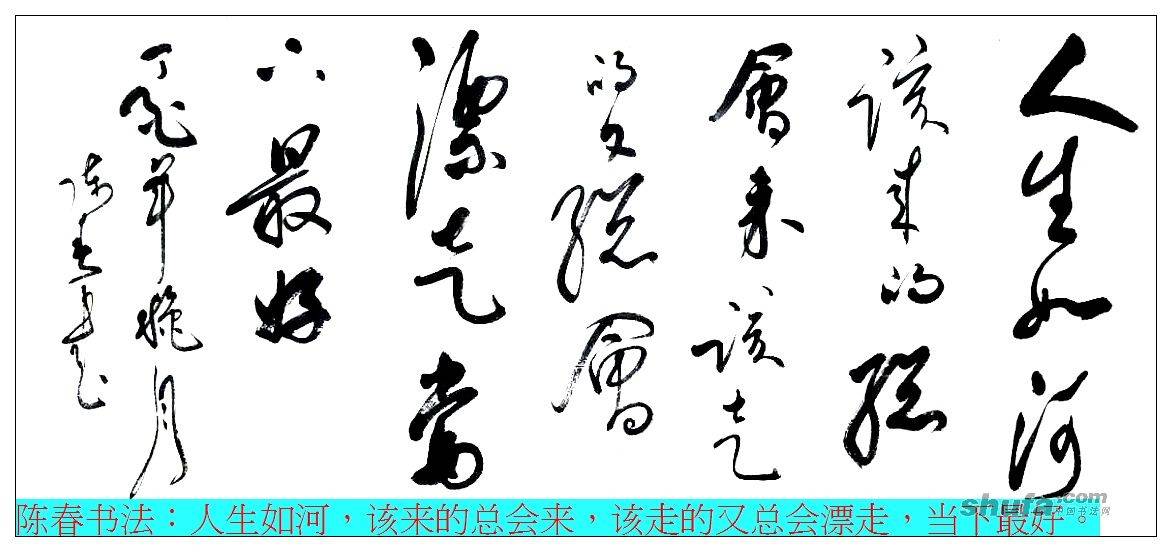 人生如河
该来的總
會来该走
的又總會
漂走當
下最好
年 月
陈春
陈春书法：人生如河，该来的总会来，该走的又总会漂走，当下最好。
shufa.com
中国书法网